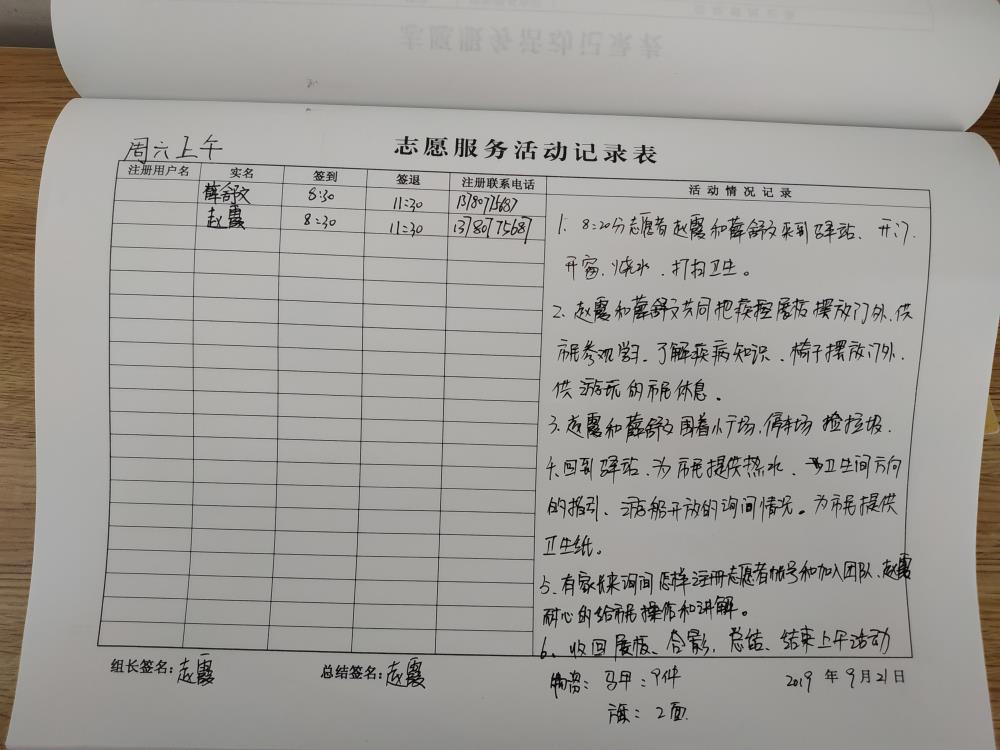 志愿服务活动记录表
周六上午
注册用户名 实名 签到 签退 注册联系电话 活动情况记录
薛舒文 8:30 11:30 13780775687
赵霞 8:30 11:30 13780775687
1. 8:20分志愿者赵霞和薛舒文来到驿站、开门.
开窗、烧水、打扫卫生。
2、赵霞和薛舒文共同把疾控展板摆放门外、供
市民参观学习、了解疾病知识、椅子摆放门外.
供游玩的市民休息。
3、赵霞和薛舒文围着小广场、停车场捡垃圾.
4、回到驿站、为市民提供热水、卫生间方向
的指引、游船开放的询问情况。为市民提供
卫生纸。
5、有家长来询问怎样注册志愿者帐号和加入团队、赵霞
耐心的给市民操作和讲解。
6、收回展板、合影、总结、结束上午活动
组长签名:赵霞 总结签名:赵霞 物资:马甲:9件 2019年9月21日
旗:2面